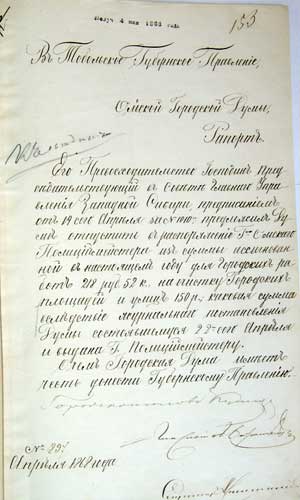 Получ. 4 мая 1868 года
153
Въ Тобольское Губернское Правленіе,
Омской Городской Думы,
Рапортъ.
Его Превосходительство Господинъ Пред
сѣдательствующій въ Совѣтѣ Главнаго Упра
вленія Западной Сибири, предписаніемъ
отъ 19 сего Апрѣля за № предложилъ Ду
мѣ отпустить въ распоряженіе Г. Омскаго
Полиціймейстера изъ суммы ассигнован
ной въ настоящемъ году для Городскихъ ра
ботъ 218 руб 52 к. на очистку Городскихъ
площадей и улицъ 150 р., каковая сумма
вслѣдствіе журнальнаго постановленія
Думы состоявшагося 22-го Апрѣля
и выдана Г. Полиціймейстеру.
О чемъ Городская Дума имѣетъ
честь донести Губернскому Правленію.
№ 895
Апрѣля 1868 года